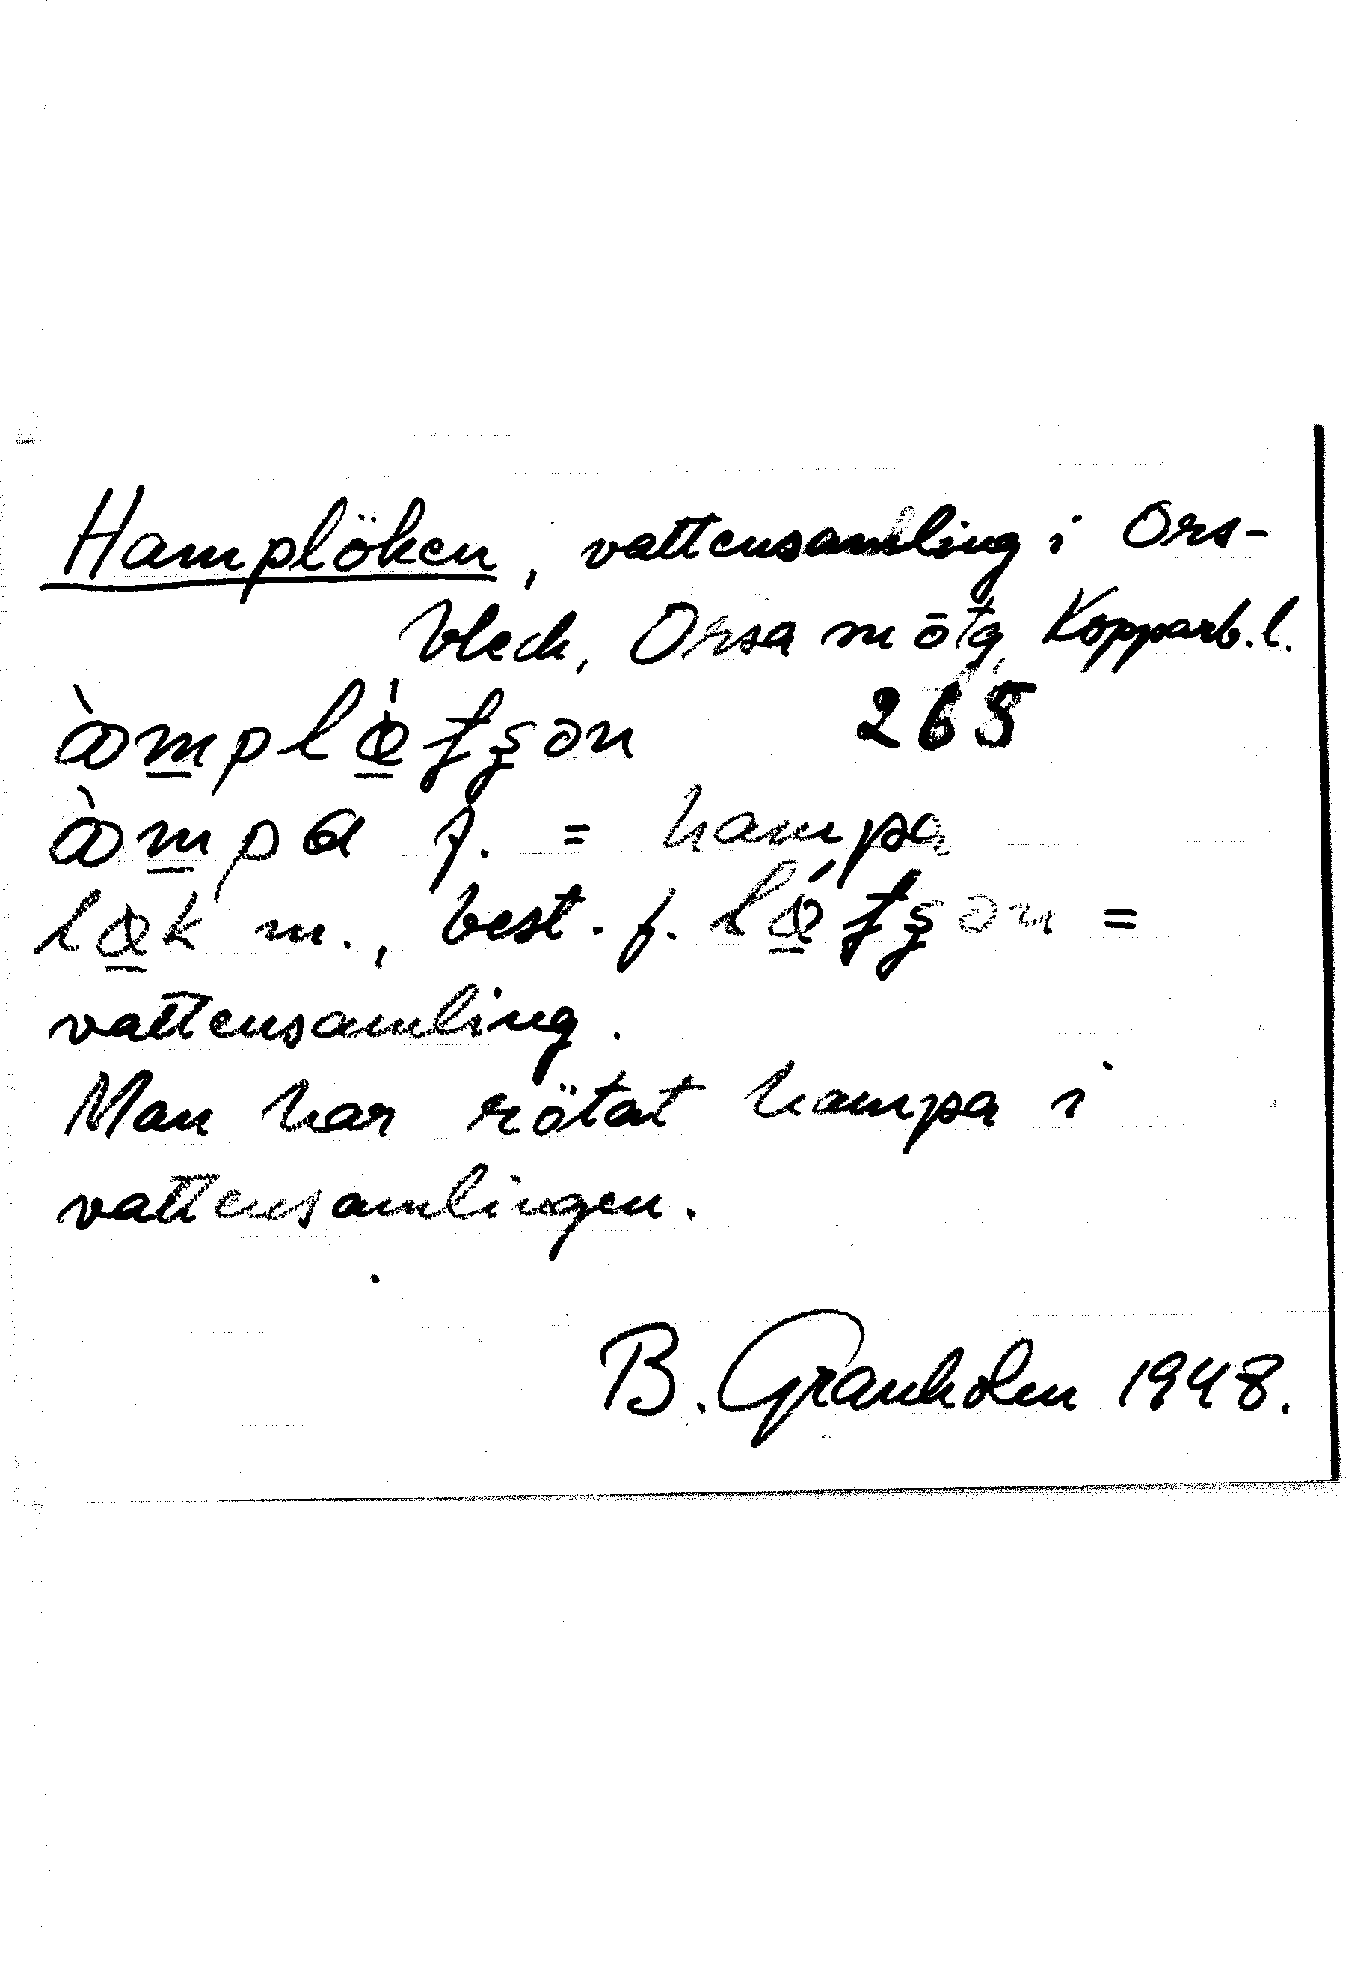 Hamplöken, vattensamling i Ors-
bleck, Orsa m ötg Kopparb.l.
265
f. = hampa
m., best. f. =
vattensamling.
Man har rötat hampa i
vattensamlingen.
B. Granholm 1948.